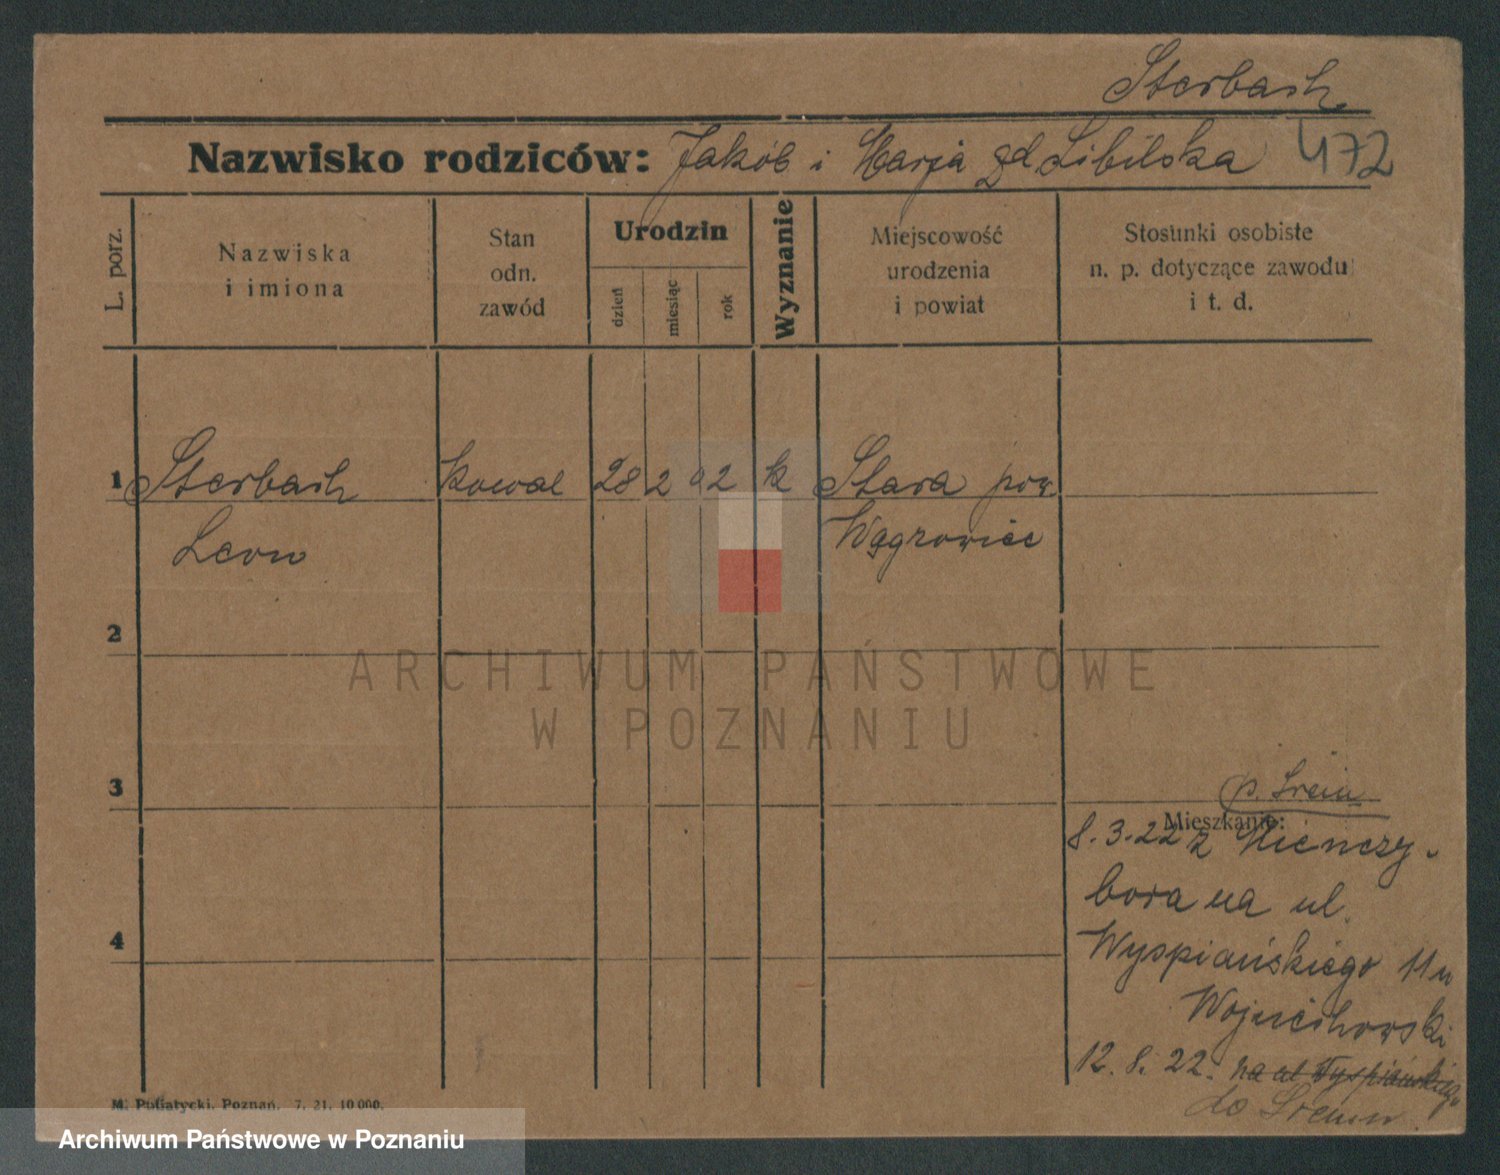 Sterbach
Nazwisko rodziców: Jakób i Marja gd. Libilska 472
L. porz.
Nazwiska
i imiona
Stan
odn.
zawód
Urodzin
dzień
miesiąc
rok
Wyznanie
Miejscowość
urodzenia
i powiat
Stosunki osobiste
n. p. dotyczące zawodu
i t. d.
1 Sterbach kowal 28 2 02 k Stara pow.
Leon Wągrowiec
2
3
p. Śrem
Mieszkanie:
8.3.22 z
bora na ul.
4
Wyspiańskiego 11 u
Wojciechowski
12.8.22. na ul Wyspiańskiego
do Śremu.
M. Putiatycki, Poznań. 7. 21. 10 000.
ARCHIWUM PAŃSTWOWE
W POZNANIU
Archiwum Państwowe w Poznaniu